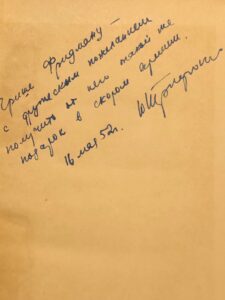 Грише Фридману –
с дружеским пожеланием
получить от него такой же
подарок в скором времени.
16 мая 52г.